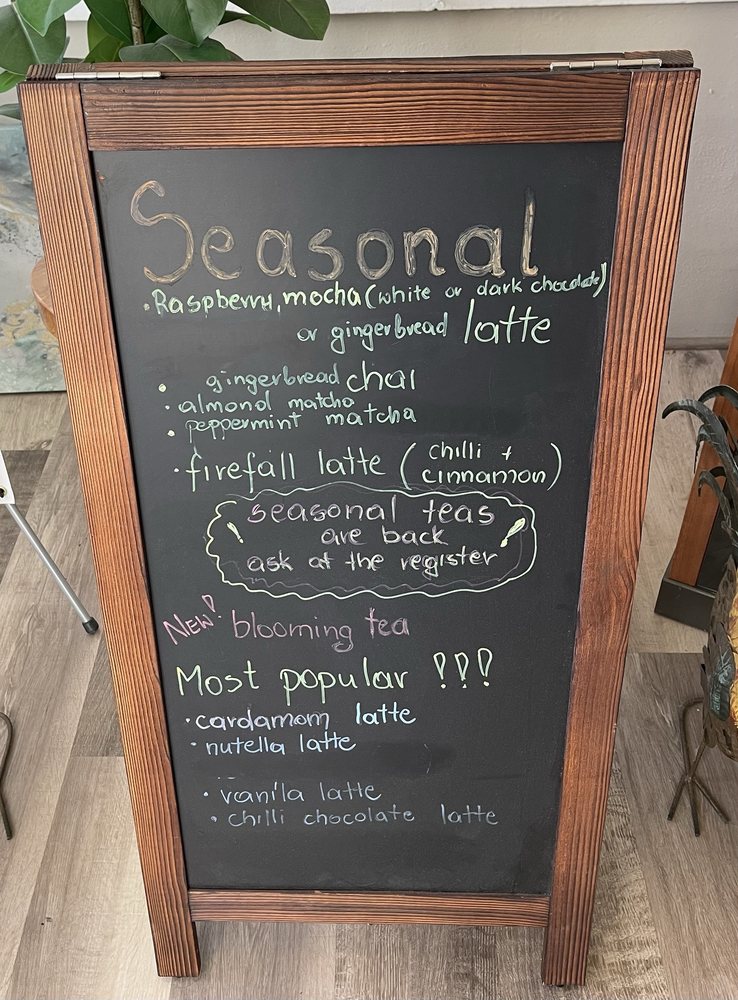 Seasonal
• Raspberry, mocha (white or dark chocolate)
or gingerbread latte
• gingerbread chai
• almond matcha
• peppermint matcha
• firefall latte (chilli + cinnamon)
! seasonal teas !
are back
ask at the register
New! blooming tea
Most popular !!!
• cardamom latte
• nutella latte
• vanila latte
• chilli chocolate latte